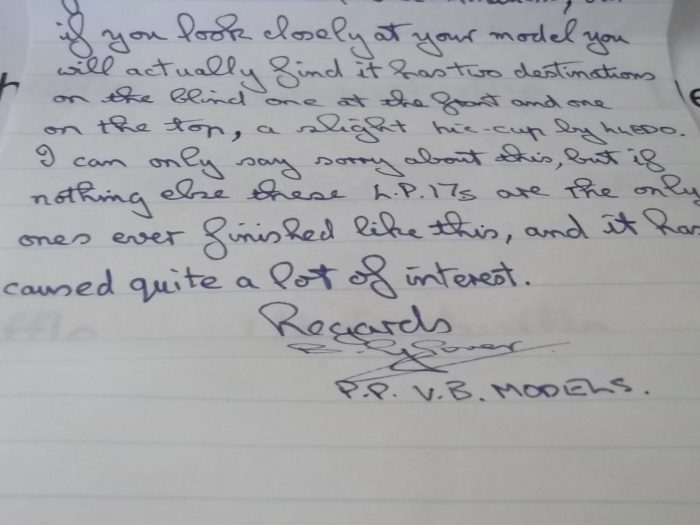 if you look closely at your model you
will actually find it has two destinations
on the blind one at the front and one
on the top, a slight hic-cup by LLEDO.
I can only say sorry about this, but if
nothing else these L.P.17s are the only
ones ever finished like this, and it has
caused quite a lot of interest.
Regards
P.P. V.B. MODELS.